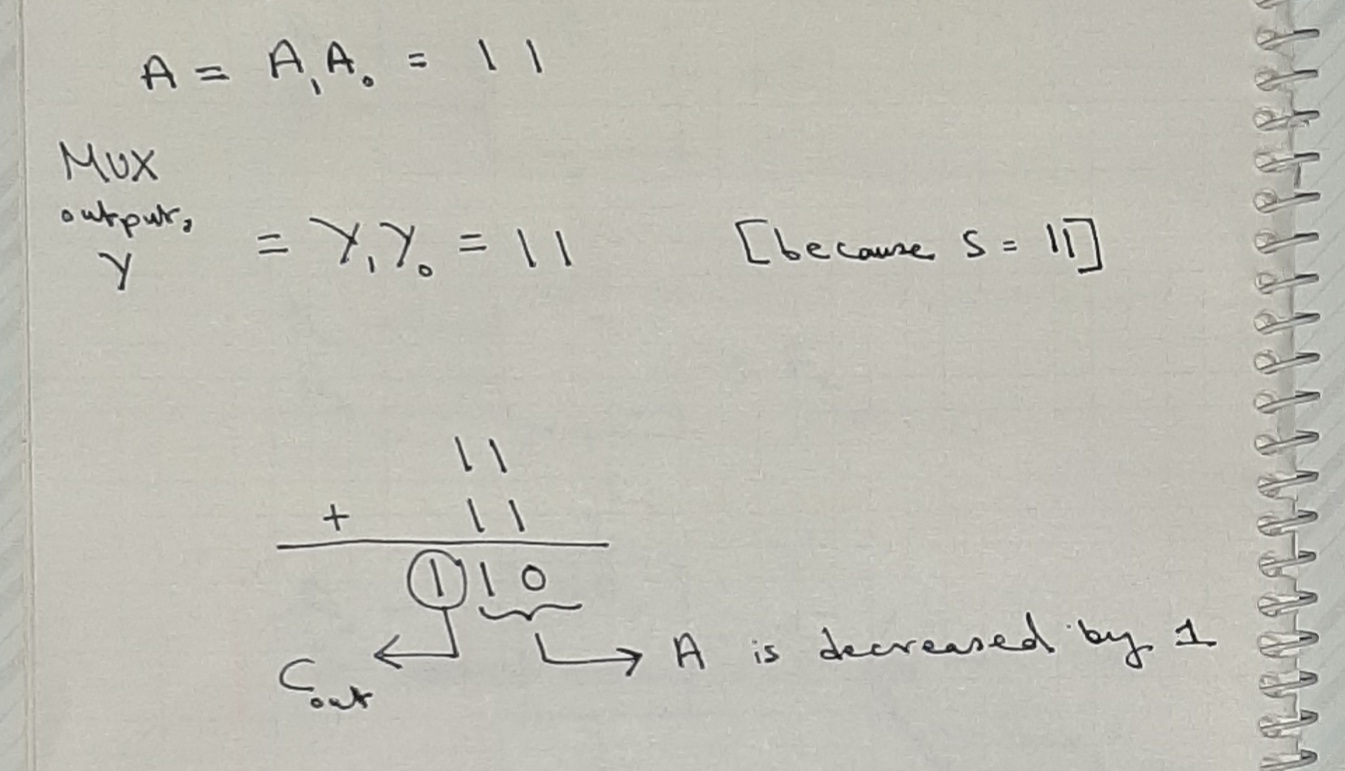 A = A₁A₀ = 11
MUX
output,
Y = Y₁Y₀ = 11 [because S = 11]
11
+ 11
110
A is decreased by 1
Cout